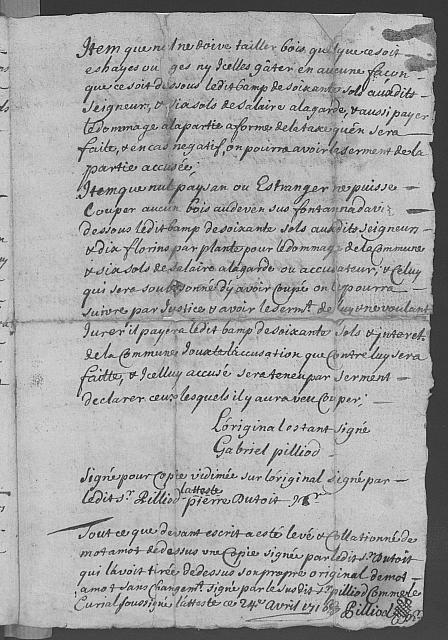 Item que nul ne doive tailler bois, quel que ce soit
es hayes ou ges ny Icelles gâter en aucune facon
que ce soit dessous ledit bamp de soixante sols auxdits
Seigneurs, & six sols de salaire a la garde, & aussi payer
le dommage a la partie a forme de la taxe qu'en sera
faite, & en cas negatif, on pourra avoir le serment de la
partie accusée;
Item que nul paysan ou Estranger ne puisse
Couper aucun bois au deven sus fontanna davi
dessous ledit bamp de soixante sols auxdits seigneurs
& dix florins par plante pour le dommage de la Commune
& six sols de salaire a la garde ou accusateur; & Celuy
qui sera soubsonné d'y avoir Coupé on le pourra
suivre par Justice & avoir le serm.t de luy & ne voulant
Jurer il payera ledit bamp de soixante sols & interet
de la Commune Jouxte l'accusation que Contre luy sera
faitte, & Icelluy accusé sera teneu par serment
declarer ceux lesquels il y aura veu Couper;
L'original estant signé
Gabriel pilliod
Signé pour Copie vidimée sur l'original signé par
ledit S.r Pilliod l'atteste pierre Dutoit
Tout ce que devant escrit a esté levé & Collationné de
mot a mot de dessus une Copie signée par ledit S.r Dutoit
qui l'avoit tirée de dessus son propre original de mot
a mot sans Changem.t signé par le susdit S.r pilliod Comme le
Curial soussigné l'atteste ce 24.e Avril 1718
Pilliod